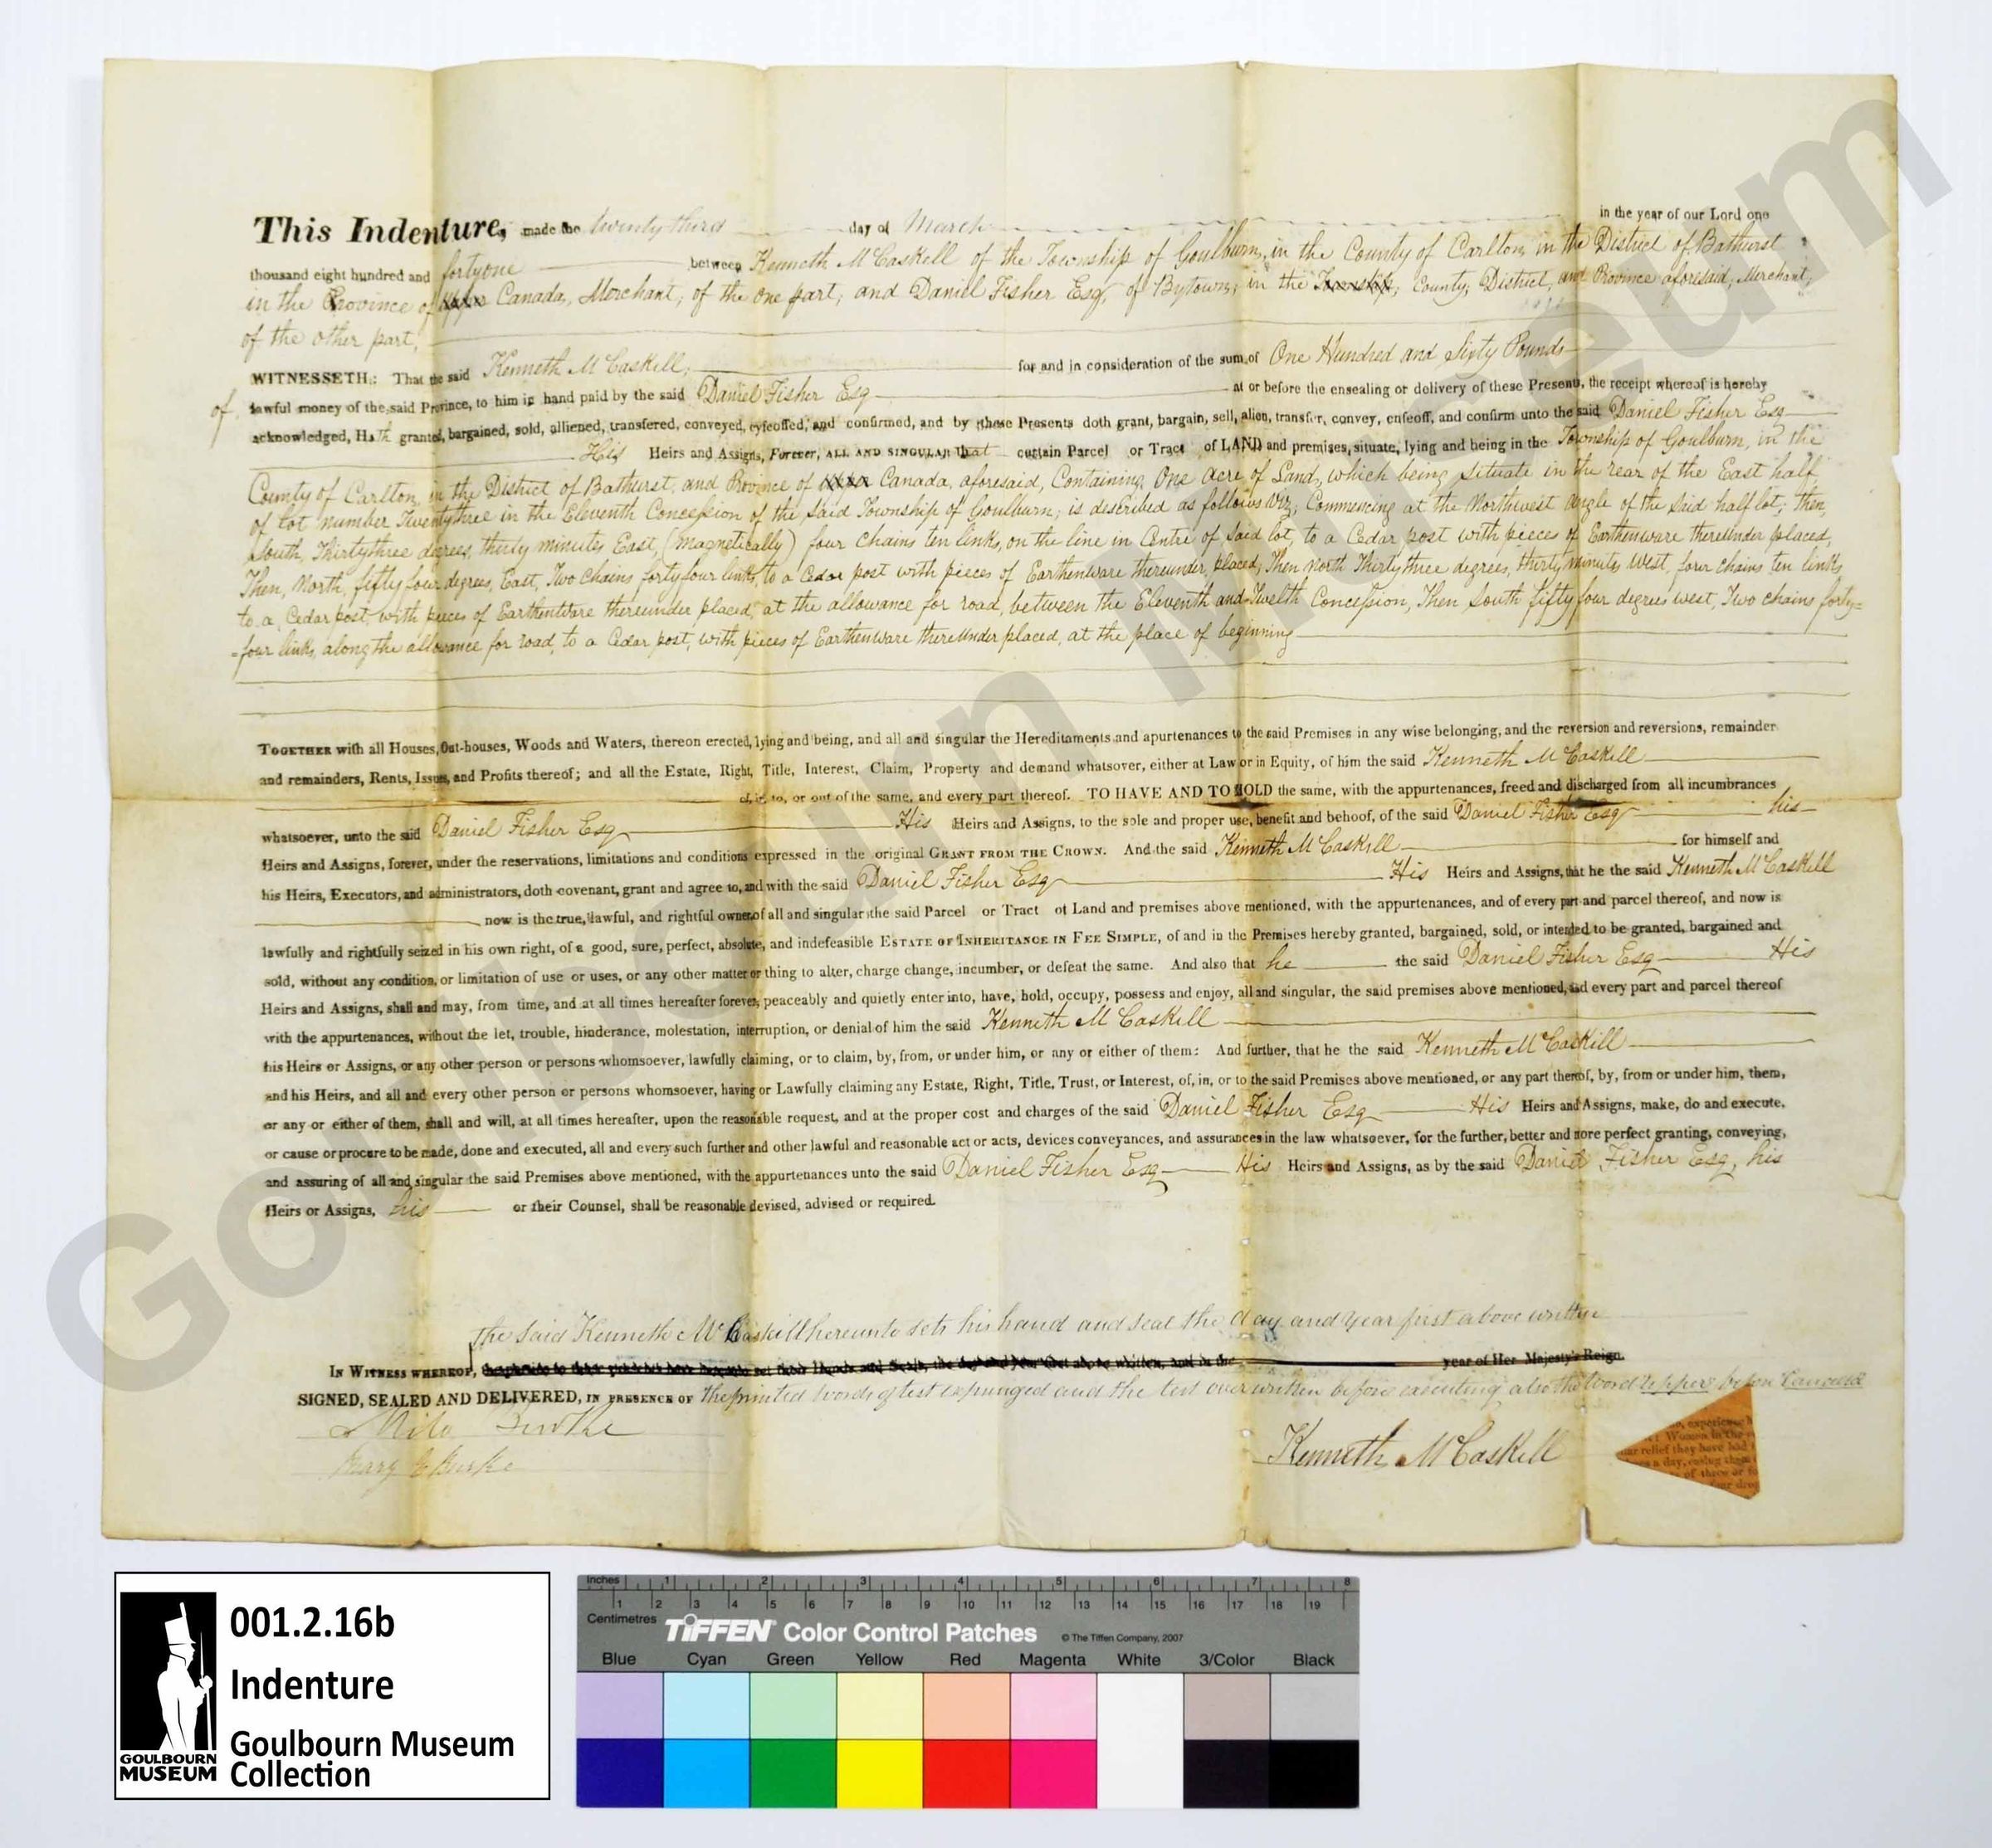 This Indenture, made the twenty third day of March in the year of our Lord one
thousand eight hundred and forty one between Kenneth McCaskell of the Township of Goulburn, in the County of Carlton, in the District of Bathurst,
in the Province of Canada, Merchant, of the One part, and Daniel Fisher Esq, of Bytown, in the County, District, and Province aforesaid, Merchant,
of the other part.
WITNESSETH: That the said Kenneth McCaskell, for and in consideration of the sum of One Hundred and Sixty Pounds
of lawful money of the said Province, to him in hand paid by the said Daniel Fisher Esq at or before the ensealing or delivery of these Presents, the receipt whereof is hereby
acknowledged, Hath granted, bargained, sold, alliened, transfered, conveyed, enfeoffed, and confirmed, and by these Presents doth grant, bargain, sell, alien, transfer, convey, enfeoff, and confirm unto the said Daniel Fisher Esq
His Heirs and Assigns, Forever, ALL AND SINGULAR that certain Parcel or Tract of LAND and premises, situate, lying and being in the Township of Goulburn, in the
County of Carlton, in the District of Bathurst, and Province of Canada, aforesaid, Containing One Acre of Land, which being situate in the rear of the East half,
of lot number Twentythree in the Eleventh Concession of the said Township of Goulburn, is described as follows Viz; Commencing at the Northwest angle of the said half lot, then,
South, Thirtythree degrees, thirty minutes East, (Magnetically) four chains ten links, on the line in Centre of said lot, to a Cedar post with pieces of Earthenware thereunder placed,
Then, North, fifty four degrees, East, Two chains forty four links, to a Cedar post with pieces of Earthenware thereunder placed, Then North Thirty three degrees, thirty minutes West, four chains ten links
to a Cedar post, with pieces of Earthenware thereunder placed, at the allowance for road, between the Eleventh and Twelth Concession, Then South fifty four degrees west, Two chains forty=
=four links, along the allowance for road, to a Cedar post, with pieces of Earthenware thereunder placed, at the place of beginning
TOGETHER with all Houses, Out-houses, Woods and Waters, thereon erected, lying and being, and all and singular the Hereditaments and apurtenances to the said Premises in any wise belonging, and the reversion and reversions, remainder
and remainders, Rents, Issues, and Profits thereof; and all the Estate, Right, Title, Interest, Claim, Property and demand whatsover, either at Law or in Equity, of him the said Kenneth McCaskell
of, in, to, or out of the same, and every part thereof. TO HAVE AND TO HOLD the same, with the appurtenances, freed and discharged from all incumbrances
whatsoever, unto the said Daniel Fisher Esq His Heirs and Assigns, to the sole and proper use, benefit and behoof, of the said Daniel Fisher Esq his
Heirs and Assigns, forever, under the reservations, limitations and conditions expressed in the original GRANT FROM THE CROWN. And the said Kenneth McCaskell for himself and
his Heirs, Executors, and administrators, doth covenant, grant and agree to, and with the said Daniel Fisher Esq His Heirs and Assigns, that he the said Kenneth McCaskell
now is the true, lawful, and rightful owner of all and singular the said Parcel or Tract of Land and premises above mentioned, with the appurtenances, and of every part and parcel thereof, and now is
lawfully and rightfully seized in his own right, of a good, sure, perfect, absolute, and indefeasible ESTATE OF INHERITANCE IN FEE SIMPLE, of and in the Premises hereby granted, bargained, sold, or intended to be granted, bargained and
sold, without any condition, or limitation of use or uses, or any other matter or thing to alter, charge change, incumber, or defeat the same. And also that he the said Daniel Fisher Esq His
Heirs and Assigns, shall and may, from time, and at all times hereafter forever, peaceably and quietly enter into, have, hold, occupy, possess and enjoy, all and singular, the said premises above mentioned, and every part and parcel thereof
with the appurtenances, without the let, trouble, hinderance, molestation, interruption, or denial of him the said Kenneth McCaskell
his Heirs or Assigns, or any other person or persons whomsoever, lawfully claiming, or to claim, by, from, or under him, or any or either of them: And further, that he the said Kenneth McCaskell
and his Heirs, and all and every other person or persons whomsoever, having or Lawfully claiming any Estate, Right, Title, Trust, or Interest, of, in, or to the said Premises above mentioned, or any part thereof, by, from or under him, them,
or any or either of them, shall and will, at all times hereafter, upon the reasonable request, and at the proper cost and charges of the said Daniel Fisher Esq His Heirs and Assigns, make, do and execute,
or cause or procure to be made, done and executed, all and every such further and other lawful and reasonable act or acts, devices conveyances, and assurances in the law whatsoever, for the further, better and more perfect granting, conveying,
and assuring of all and singular the said Premises above mentioned, with the appurtenances unto the said Daniel Fisher Esq His Heirs and Assigns, as by the said Daniel Fisher Esq, his
Heirs or Assigns, his or their Counsel, shall be reasonable devised, advised or required.
the said Kenneth McCaskell hereunto sets his hand and seal the day and year first above written
IN WITNESS WHEREOF, year of Her Majesty's Reign.
SIGNED, SEALED AND DELIVERED, IN PRESENCE OF the printed words of test expunged and the test over written before executing also the word Upper before Canada
Milo Burke
Mary C Burke
Kenneth McCaskell
experience
Women in the
relief they have had
a day, easing them
of three or
four
Goulbourn Museum
001.2.16b
Indenture
Goulbourn Museum
Collection
GOULBOURN
MUSEUM
Inches 1 2 3 4 5 6 7 8
Centimetres 1 2 3 4 5 6 7 8 9 10 11 12 13 14 15 16 17 18 19
TIFFEN Color Control Patches © The Tiffen Company, 2007
Blue Cyan Green Yellow Red Magenta White 3/Color Black